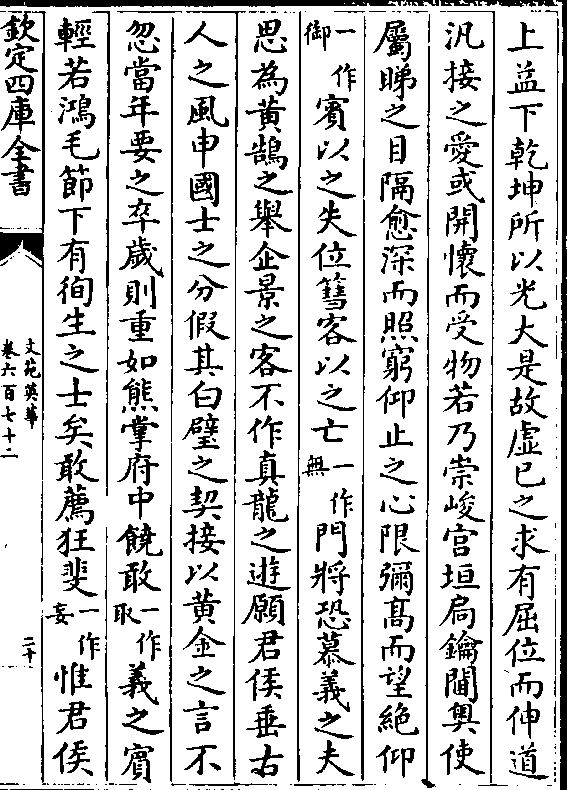 上益下乾坤所以光大是故虛已之求有屈位而伸道
汎接之愛或開懷而受物若乃崇峻宮垣扃鑰閫奧使
屬睇之目隔愈深而照窮仰止之心限彌髙而望絶仰
一作御賓以之失位簪客以之亡一作無門將恐慕義之夫
思為黄鵠之舉企景之客不作真龍之遊願君侯垂古
人之風申國士之分假其白璧之契接以黄金之言不
忽當年要之卒歲則重如熊掌府中饒敢一作取義之賓
輕若鴻毛節下有徇生之士矣敢薦狂斐一作妄惟君侯
欽定四庫全書
文苑英華
卷六百七十二
二十